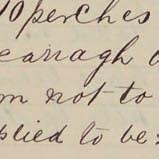 10 perches
eanagh
m not to
plied to be